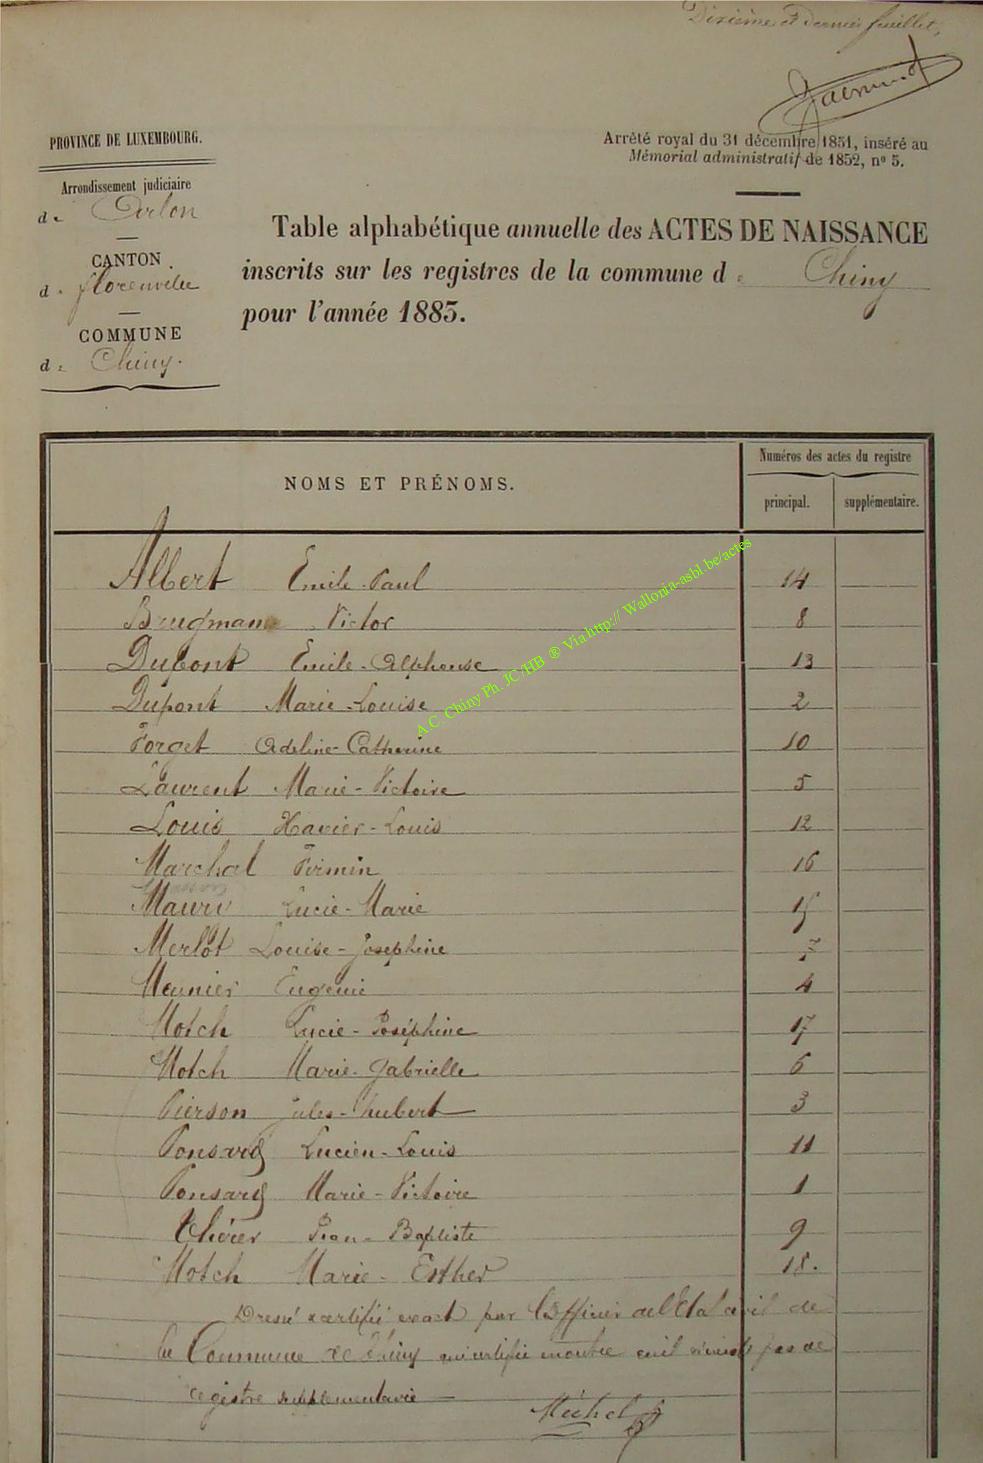 Dixième et dernier feuillet,
PROVINCE DE LUXEMBOURG.
Arrêté royal du 31 décembre 1851, inséré au
Mémorial administratif de 1852, nº 5.
Arrondissement judiciaire
d'Arlon
CANTON
de florenville
COMMUNE
de Chiny.
Table alphabétique annuelle des ACTES DE NAISSANCE
inscrits sur les registres de la commune de Chiny
pour l'année 1883.
NOMS ET PRÉNOMS.
Numéros des actes du registre
principal. supplémentaire.
Albert Emile-Paul 14
Brugman Victor 8
Dupont Emile-Alphonse 13
Dupont Marie-Louise 2
Forget Adeline-Catherine 10
Laurent Marie-Victoire 5
Louis Xavier-Louis 12
Marchal Firmin 16
Lucie-Marie 15
Merlot Louise-Joséphine 7
Meunier Eugénie 4
Motch Lucie-Joséphine 17
Motch Marie-Gabrielle 6
Pierson Jules-hubert 3
Ponsard Lucien-Louis 11
Ponsard Marie-Victoire 1
Jean-Baptiste 9
Motch Marie-Esther 18.
Dressé certifié exact par l'officier de l'Etat civil de
la Commune de Chiny qui certifie en outre qu'il n'existe pas de
registre supplémentaire
Michel
A.C. Chiny Ph. JC /HB ® Via http:// Wallonia-asbl.be/actes